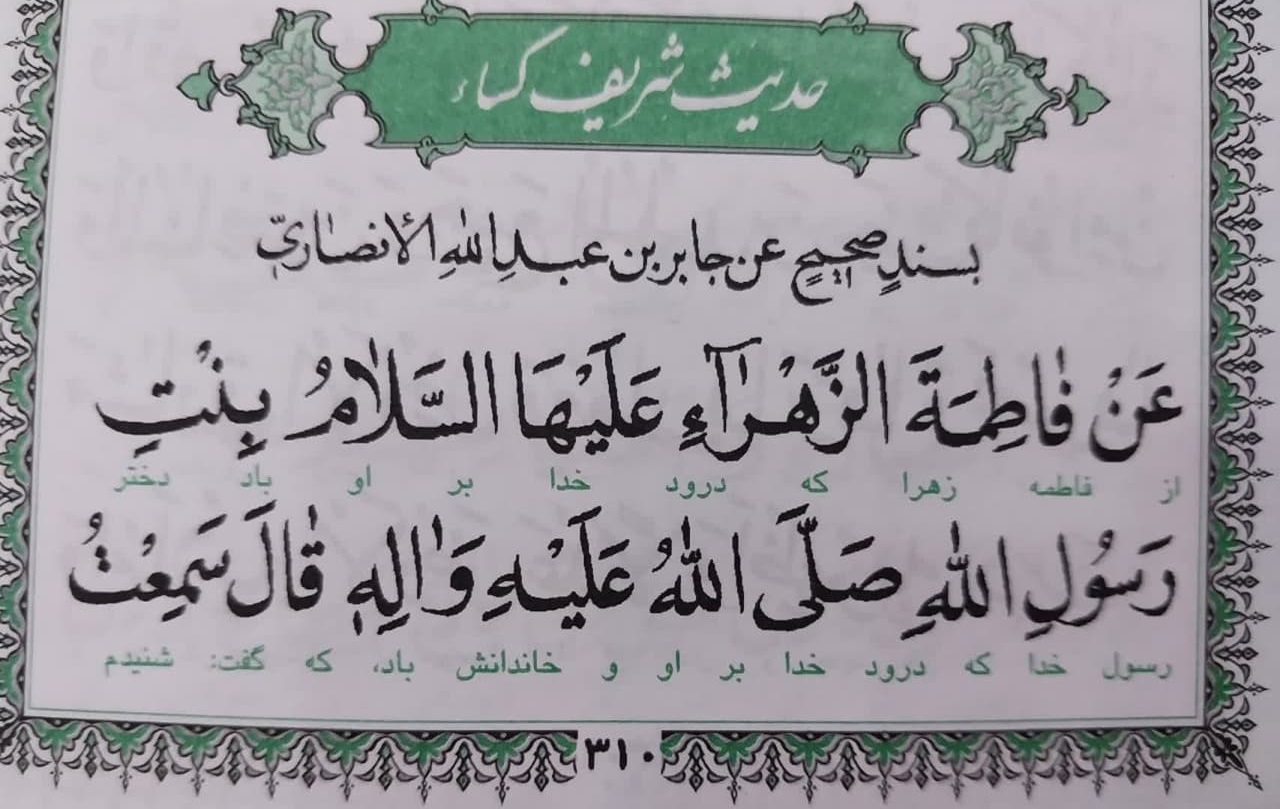 حدیث شریف کساء
بسندٍ صحیحٍ عن جابر بن عبدِاللهِ الأنصاریّ
عَنْ فاطِمَةَ الزَّهْرآءِ عَلَیْهَا السَّلامُ بِنْتِ
از فاطمه زهرا که درود خدا بر او باد دختر
رَسُولِ اللهِ صَلَّی اللهُ عَلَیْهِ وَالِهِ قالَ سَمِعْتُ
رسول خدا که درود خدا بر او و خاندانش باد، که گفت: شنیدم
٣١٠